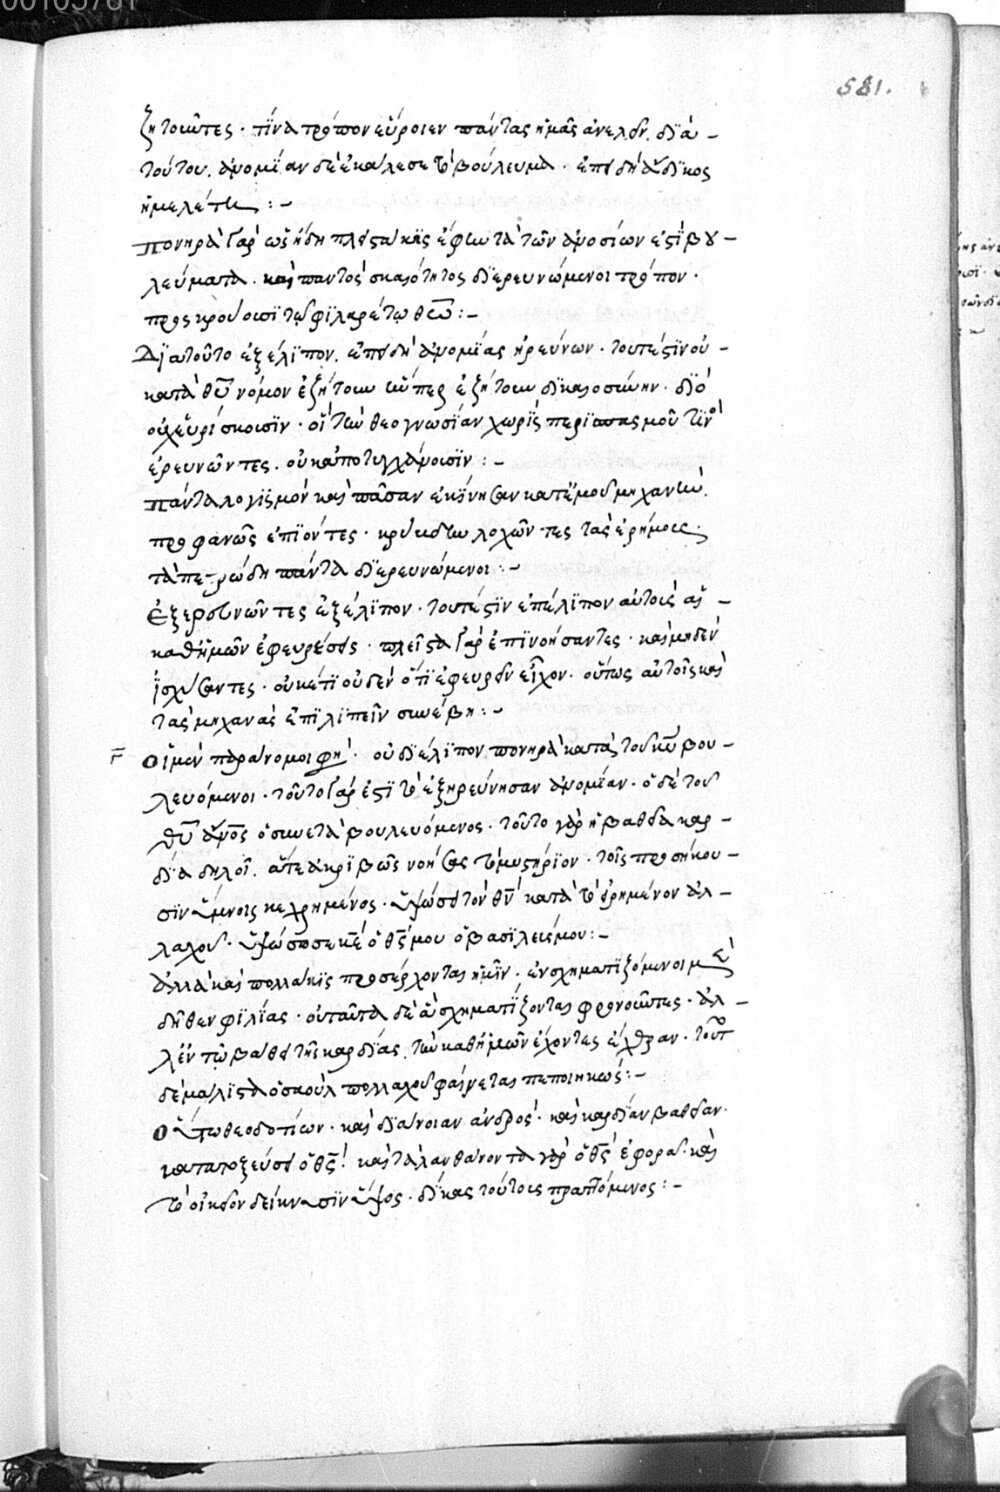 00105781
581.
ζητοῦντες· τίνα τρόπον εὕροιεν πάντας ἡμᾶς ἀνελεῖν. διὰ
τούτου. ἀνομίαν δὲ ἐκάλεσε τὸ βούλευμα· ἐπειδὴ ἄδικος
ἡ μελέτη:-
πονηρὰ γὰρ ὡς ἤδη πλειστάκις ἔφην τὰ τῶν ἀνοσίων ἐστὶ βου-
λεύματα. καὶ παντὸς σκαιότητος διερευνώμενοι τρόπον·
προσκρούουσι τῷ φιλαρέτῳ θεῶ:-
Διατοῦτο ἐξέλιπον. ἐπειδὴ ἀνομίας ἠρεύνων· τουτέστιν οὐ-
κατὰ θεοῦ νόμον ἐζήτουν ὥσπερ ἐζήτουν δικαιοσύνην· διὸ
οὐχ εὑρίσκουσιν· οἱ τὴν θεογνωσίαν χωρὶς περισπασμοῦ τινὸς
ἐρευνῶντες. οὐκ ἀποτυγχάνουσιν:-
πάντα λογισμὸν καὶ πᾶσαν ἐκίνησαν κατ' ἐμοῦ μηχανὴν.
προφανῶς ἐπιόντες· κρύβδην λοχῶντες τὰς ἐρήμους·
τὰ πετρώδη πάντα διερευνώμενοι:-
Ἐξερευνῶντες ἐξέλιπον· τουτέστιν ἐπέλιπον αὐτοὺς αἱ-
καθ' ἡμῶν ἐφευρέσεις· πλεῖστα γὰρ ἐπινοήσαντες· καὶ μηδὲν
ἰσχύσαντες· οὐκέτι οὐδὲν ὅτι ἐφευρεῖν εἶχον· οὕτως αὐτοῖς καὶ
τὰς μηχανὰς ἐπιλιπεῖν συνέβη:-
Οἱ μὲν παράνομοι φησὶ· οὐ διέλιπον πονηρὰ κατὰ τοῦ κυρίου βου-
λευόμενοι· τοῦτο γάρ ἐστι τὸ ἐξηρεύνησαν ἀνομίαν· ὁ δὲ τοῦ
θυ ἄνος ὁ συνετὰ βουλευόμενος· τοῦτο γὰρ ἡ βαθεῖα καρ-
δία δηλοῖ. ἅτε ἀκριβῶς νοήσας τὸ μυστήριον· τοῖς προσήκου-
σιν ὕμνοις κεχρημένος· ὑψώσει τὸν θν κατὰ τὸ εἰρημένον ἀλ-
λαχοῦ· ὑψώσω σε κε ὁ θς μου ὁ βασιλεύς μου:-
ἀλλὰ καὶ πολλάκις προσέρχονται ἡμῖν· ἐνσχηματιζόμενοι με
δῆθεν φιλίας· οὐ ταῦτα δὲ ἃ σχηματίζονται φρονοῦντες· ἀλ-
λ' ἐν τῷ βάθει τῆς καρδίας τὴν καθ' ἡμῶν ἔχοντες ἔχθραν· τοῦτο
δὲ μάλιστα ὁ σαοὺλ πολλαχοῦ φαίνεται πεποιηκώς:-
Οὕτω θεοδοτίων· καὶ διάνοιαν ἀνδρὸς· καὶ καρδίαν βαθεῖαν·
κατατοξεύσει ὁ θς! καὶ τὰ λανθάνοντα γὰρ ὁ θς ἐφορᾷ· καὶ
τὸ οἰκεῖον δείκνυσιν ὕψος· δίκας τούτους πραττόμενος:-